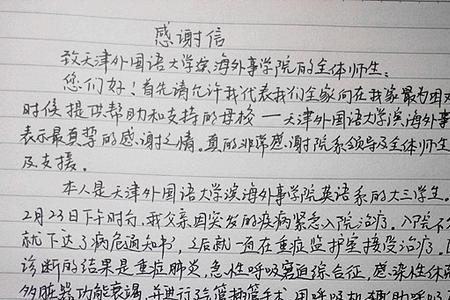 感谢信
致天津外国语大学滨海外事学院的全体师生：
您们好！首先请允许我代表我们全家向在我家最为困难
时候提供帮助和支持的母校 — 天津外国语大学滨海外事
表示最真挚的感谢之情。真的非常感谢院系领导及全体师生
及支援。
本人是天津外国语大学滨海外事学院英语系的大三学生。
2月23日下午时分，我父亲因突发的疾病紧急入院治疗。入院不
就下达了病危通知书，之后就一直在重症监护室接受治疗。
诊断的结果是重症肺炎，急性呼吸窘迫综合征，感染性休
多脏器功能衰竭，并进行了气管插管手术，用呼吸机